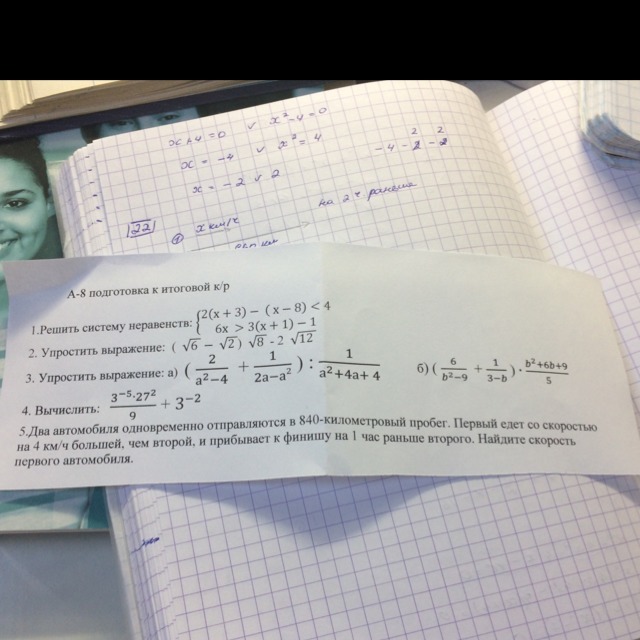 x+4=0 ∨ x²-4=0
x = -4 ∨ x² = 4
x = -2 ∨ 2
-4 -2 -2
2 2
22
① x км/ч
на 2 ч раньше
А-8 подготовка к итоговой к/р
1.Решить систему неравенств: {2(x + 3) − (x − 8) < 4
6x > 3(x + 1) − 1
2. Упростить выражение: ( √6 − √2) √8 - 2 √12
3. Упростить выражение: а) (2/(a²−4) + 1/(2a−a²)) : 1/(a²+4a+4) б) (6/(b²−9) + 1/(3−b)) · (b²+6b+9)/5
4. Вычислить: (3⁻⁵·27²)/9 + 3⁻²
5.Два автомобиля одновременно отправляются в 840-километровый пробег. Первый едет со скоростью
на 4 км/ч большей, чем второй, и прибывает к финишу на 1 час раньше второго. Найдите скорость
первого автомобиля.